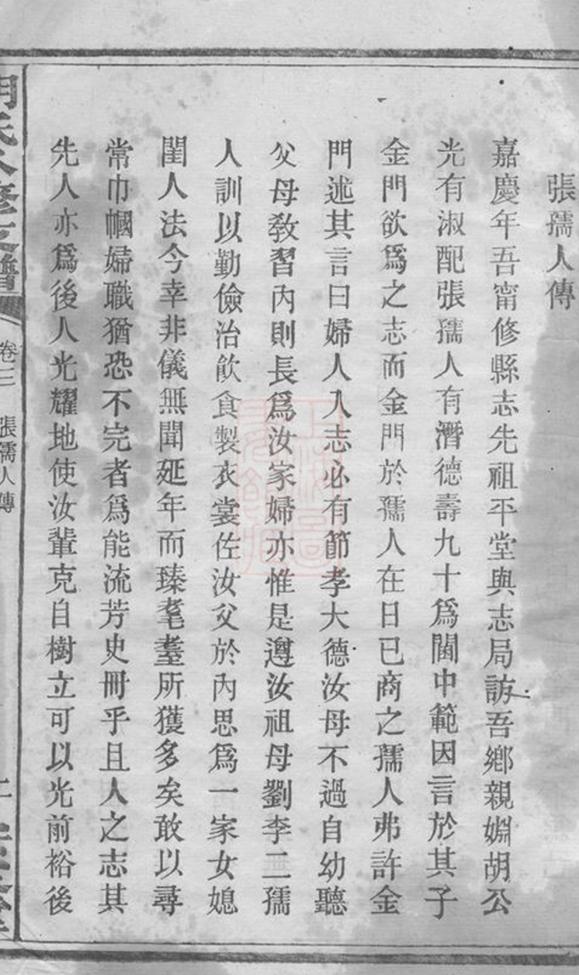 張孺人傳
嘉慶年吾甯修縣志先祖平堂與志局訪吾鄉親婣胡公
光有淑配張孺人有潛德壽九十爲閫中範因言於其子
金門欲爲之志而金門於孺人在日已商之孺人弗許金
門述其言曰婦人入志必有節孝大德汝母不過自幼聽
父母敎習內則長爲汝家婦亦惟是遵汝祖母劉李二孺
人訓以勤儉治飮食製衣裳佐汝父於內思爲一家女媳
閨人法今幸非儀無聞延年而臻耄耋所獲多矣敢以尋
常巾幗婦職猶恐不完者爲能流芳史冊乎且人之志其
先人亦爲後人光耀地使汝輩克自樹立可以光前裕後
卷三
張孺人傳